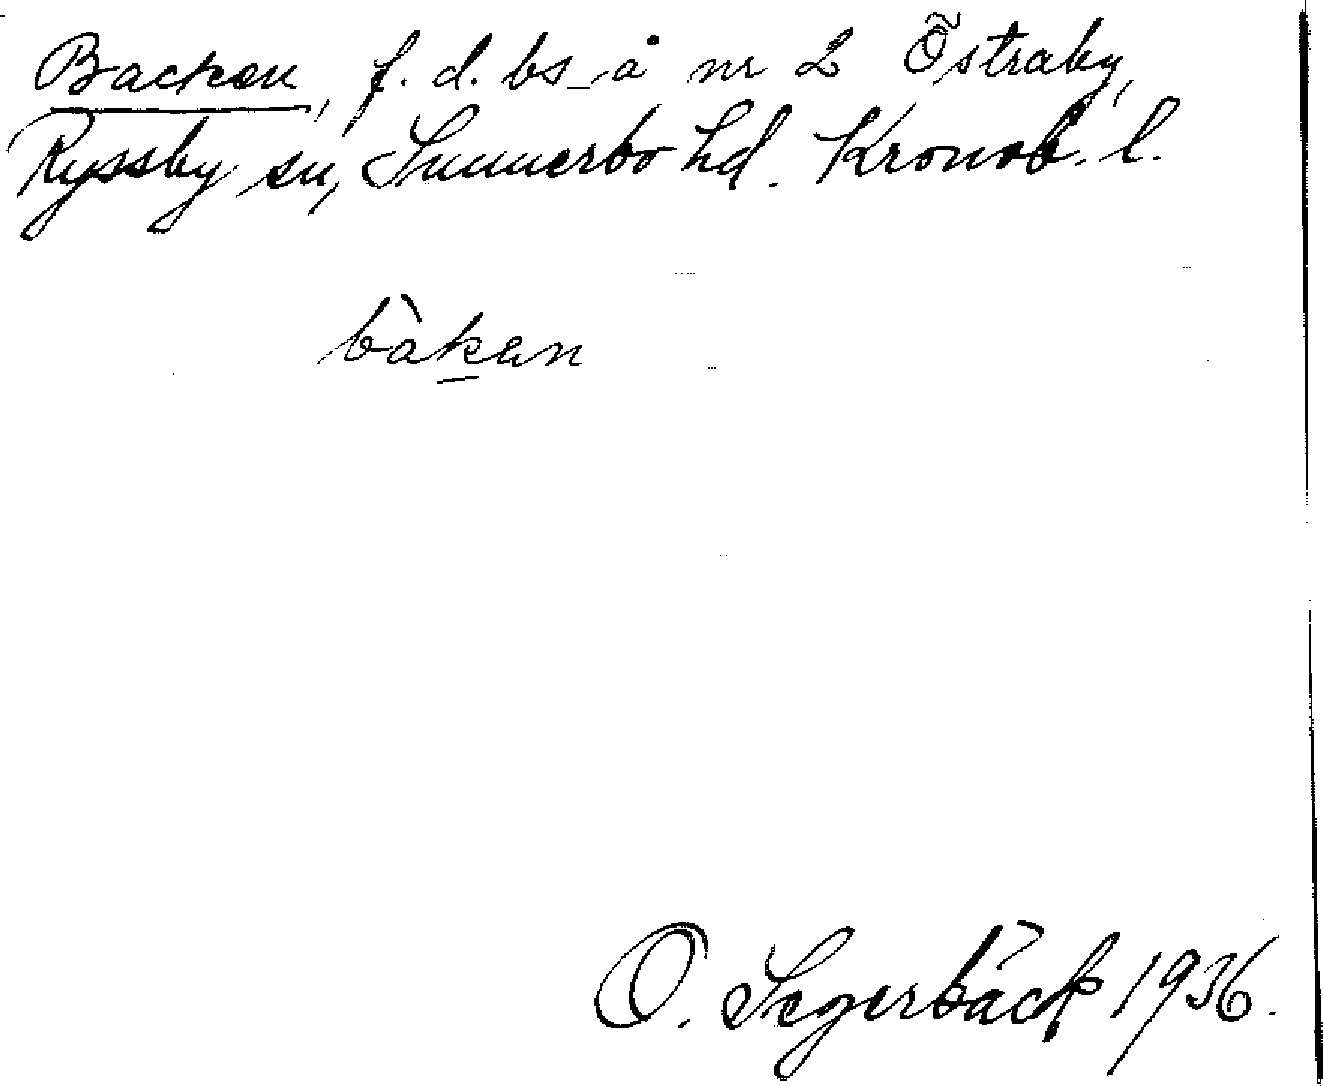 Backen, f. d. bs å nr 2 Östraby,
Ryssby sn, Sunnerbo hd. Kronob. l.
bàkan
O. Segerbäck 1936.